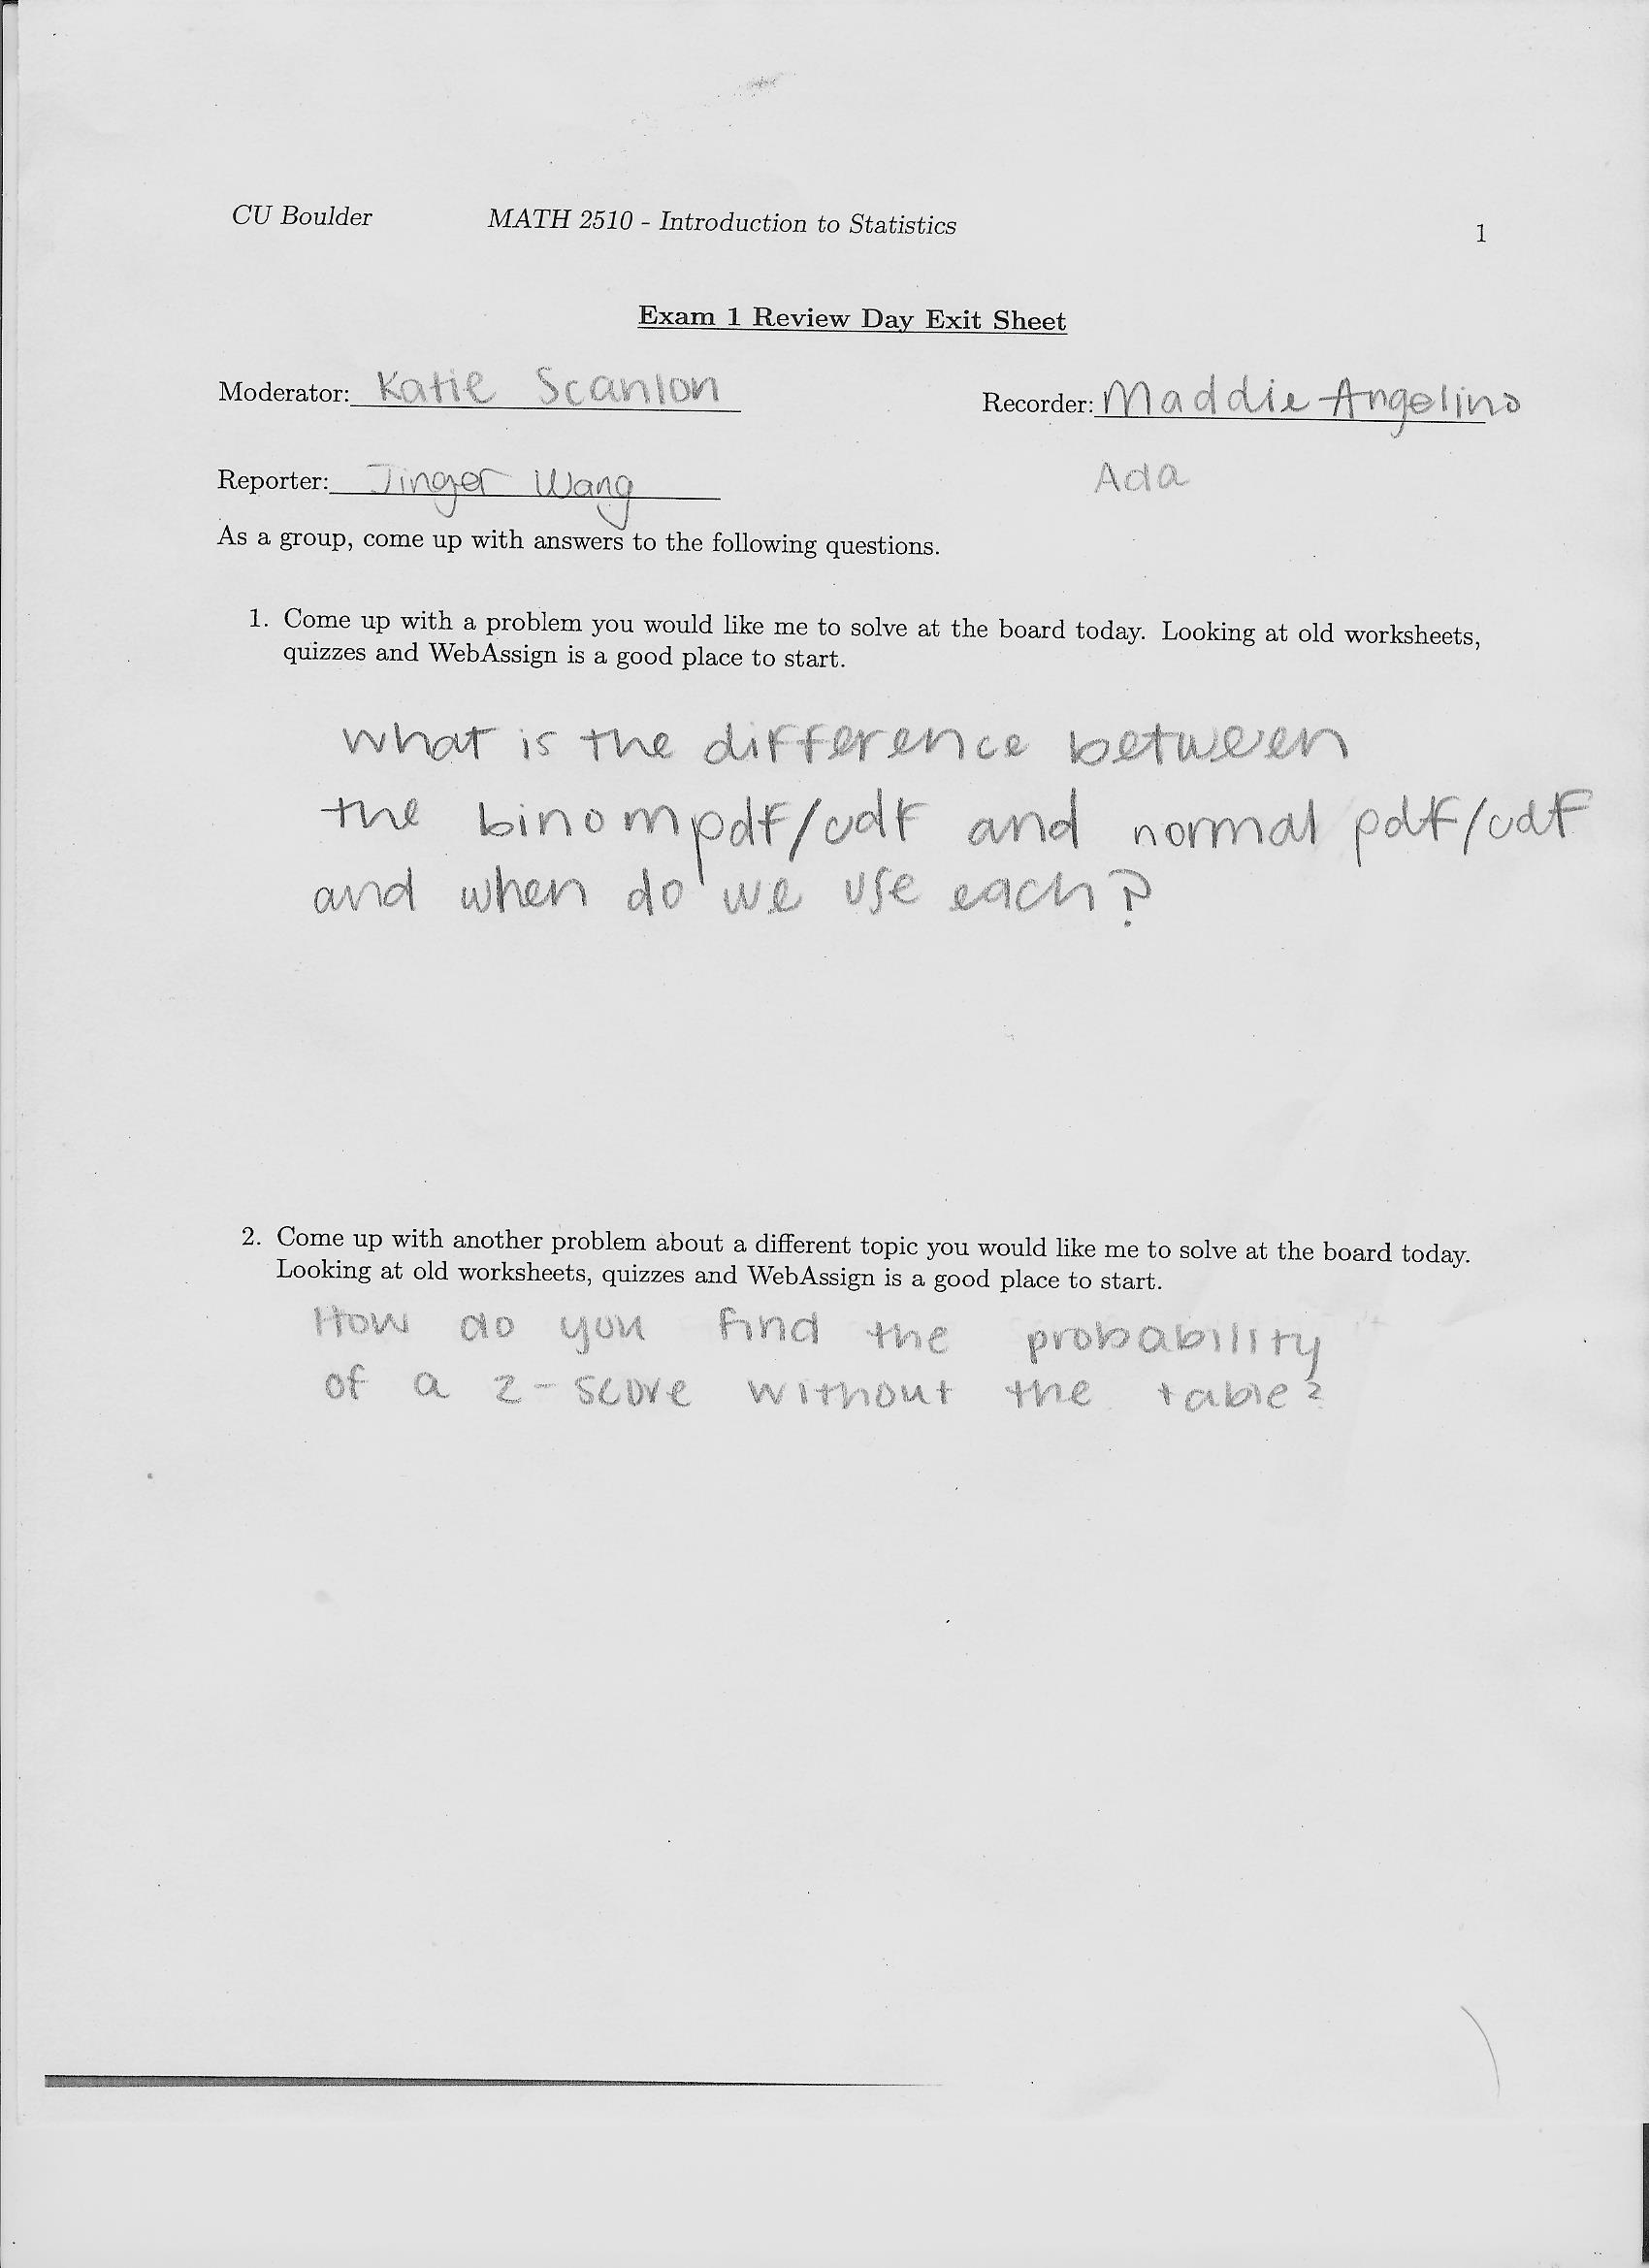 CU Boulder MATH 2510 - Introduction to Statistics 1
Exam 1 Review Day Exit Sheet
Moderator: Katie Scanlon Recorder: Maddie Angelino
Reporter: Jinger Wang Ada
As a group, come up with answers to the following questions.
1. Come up with a problem you would like me to solve at the board today. Looking at old worksheets,
quizzes and WebAssign is a good place to start.
What is the difference between
the binompdf/cdf and normal pdf/cdf
and when do we use each?
2. Come up with another problem about a different topic you would like me to solve at the board today.
Looking at old worksheets, quizzes and WebAssign is a good place to start.
How do you find the probability
of a z-score without the table?